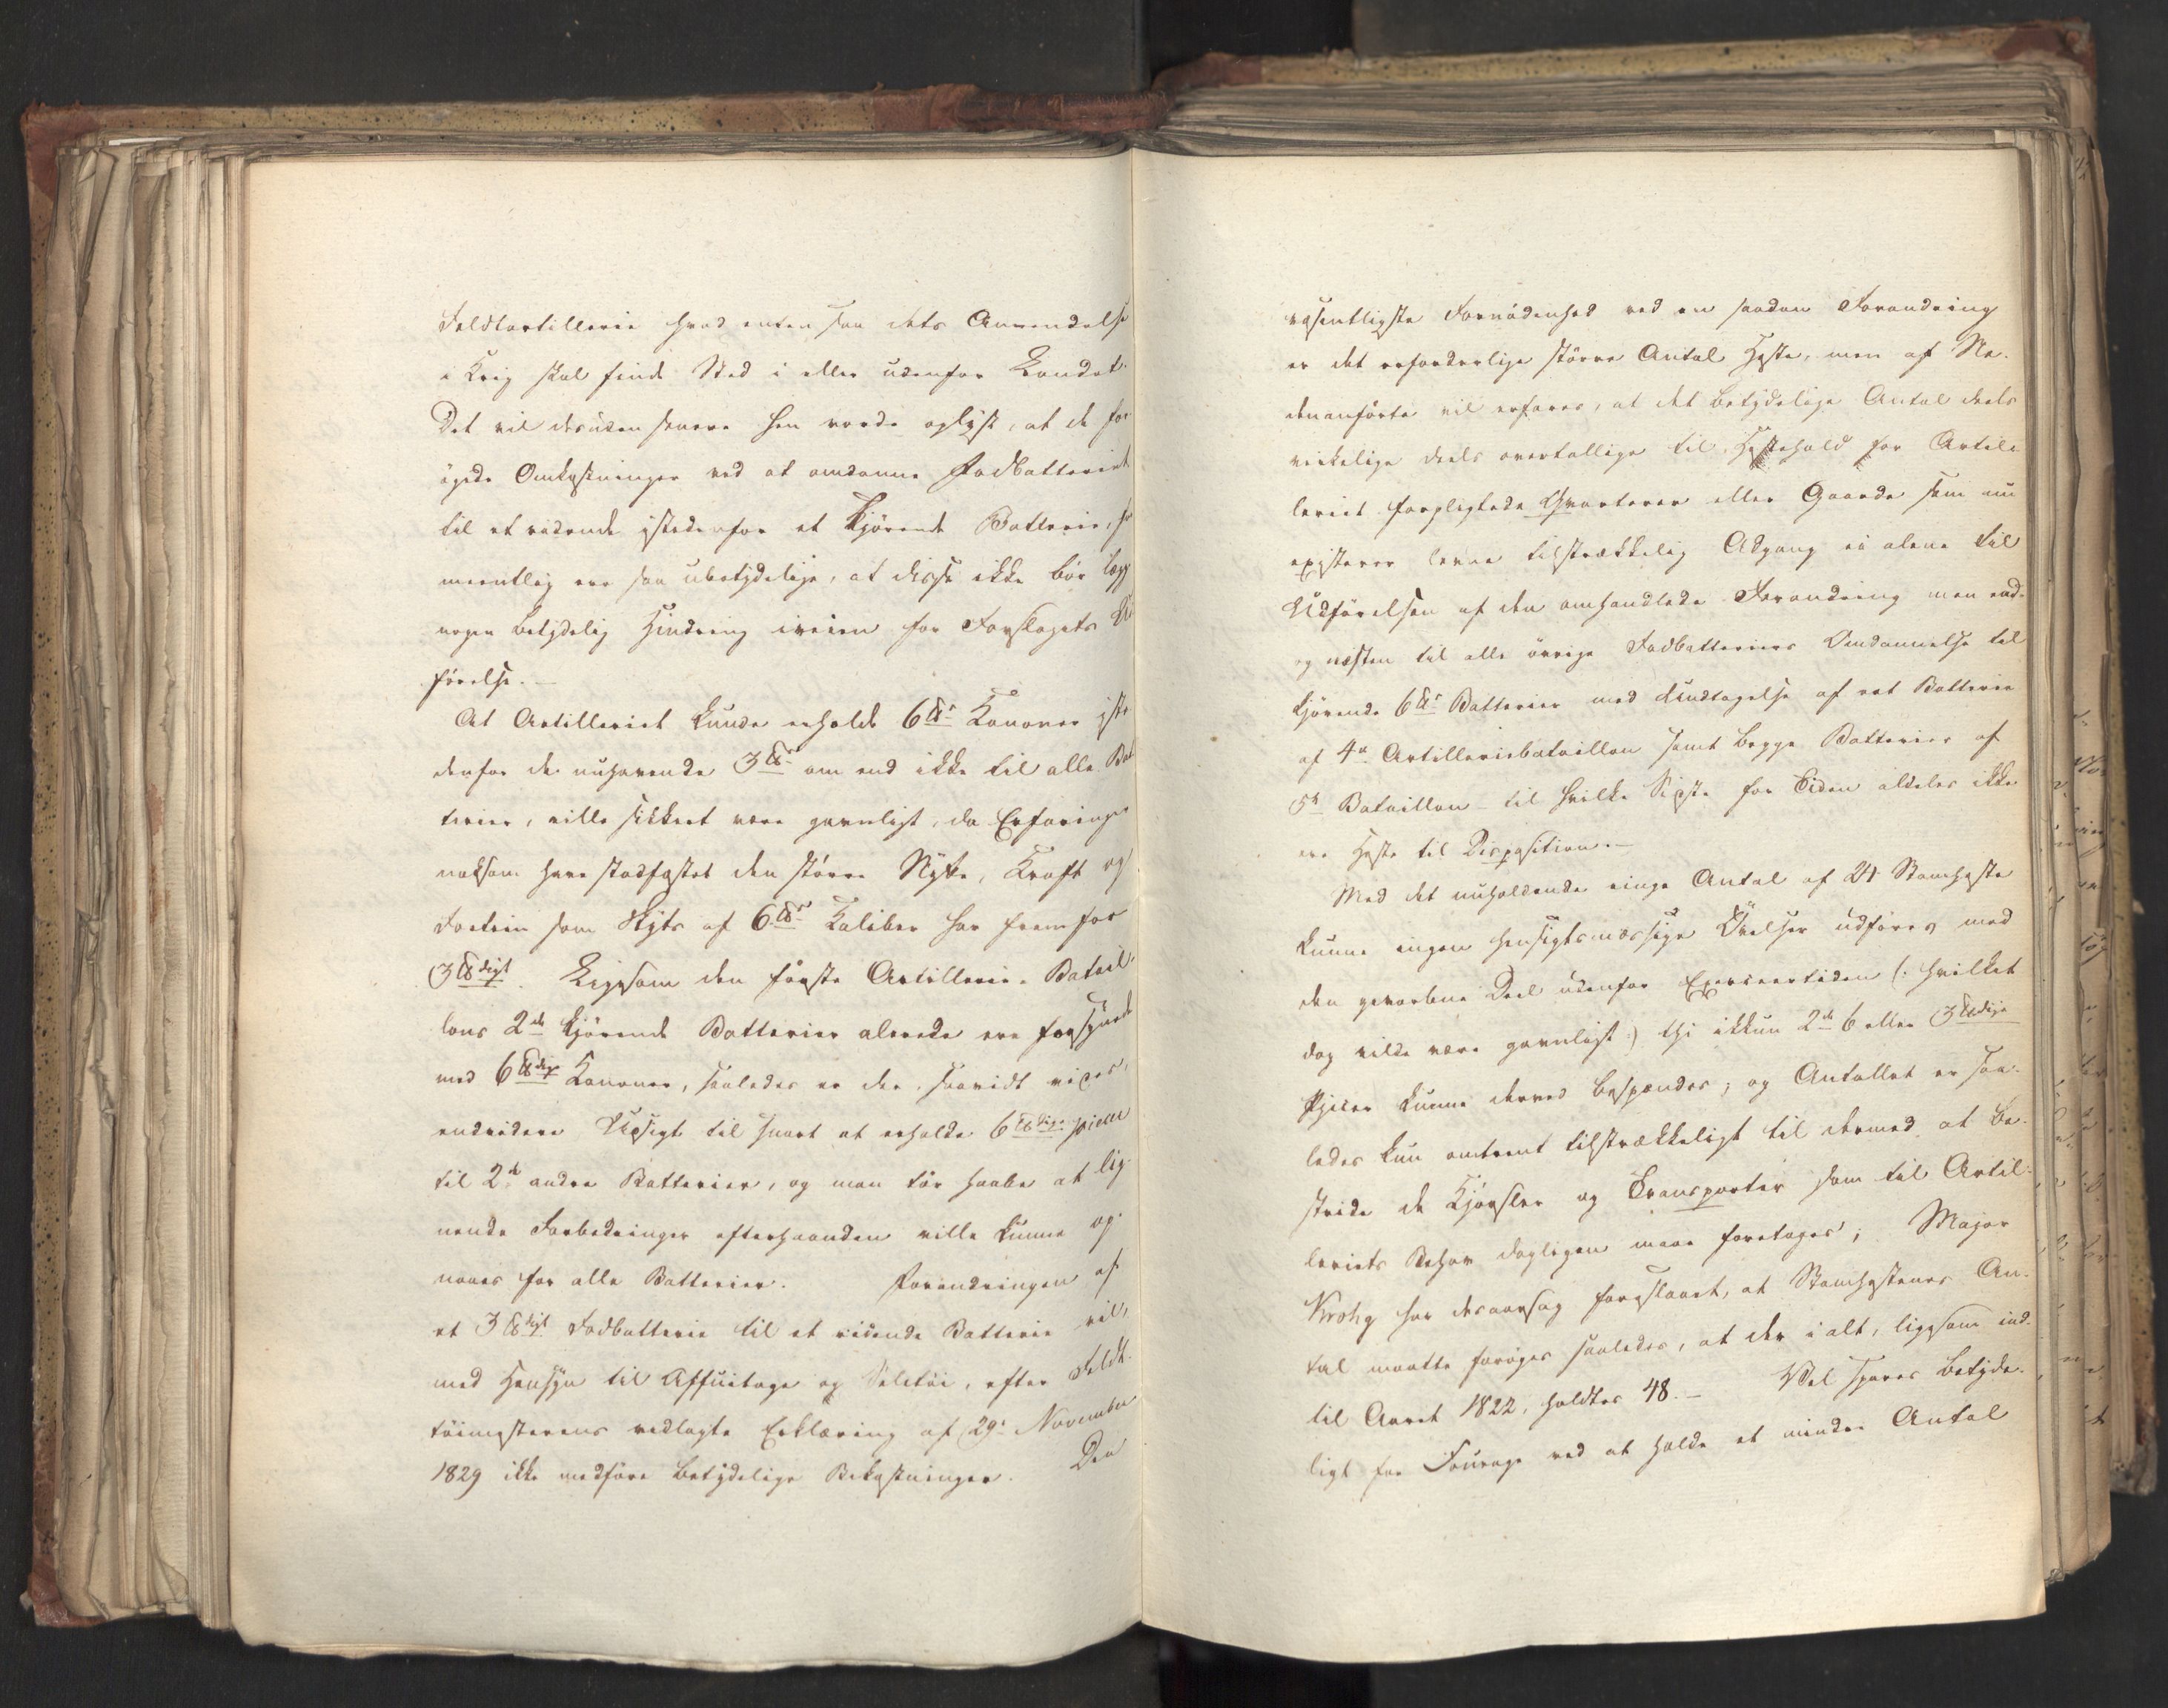 Feldtartillerie hvad enten saa dets Anvendelse
i Krig skal finde Sted i eller udenfor Landet.
Det vil desuden senere hen vorde oplyst, at de for
øgede Omkostninger ved at omdanne Fodbatteriet
til et ridende istedenfor et kjørende Batterie, for
mentlig ere saa ubetydelige, at disse ikke bør lægge
nogen betydelig Hindring iveien for Forslagets Ud
førelse. —
At Artilleriet kunde erholde 6 ℔s Kanoner iste
denfor de nuhavende 3 ℔s om end ikke til alle Bat
terier, ville sikkert være gavnligt, da Erfaringer
noksom have stadfæstet den større Nytte, Kraft og
Fortrin som Skyts af 6 ℔s Kaliber har fremfor
3 ℔digt. Ligesom den første Artillerie-Batail
lons 2de kjørende Batterier alerede ere forsynede
med 6 ℔dige Kanoner, saaledes er der, saavidt vides,
endvidere Udsigt til snart at erholde 6 ℔dige Pieçer
til 2de andre Batterier, og man tør haabe at lig-
nende Forbedringer efterhaanden ville kunne op-
naaes for alle Batterier. Forandringen af
et 3 ℔digt Fodbatterie til et ridende Batterie vil,
med Hensyn til Affuitage og Seletøi, efter Feldt-
tøimesterens vedlagte Erklæring af 29de November
1829 ikke medføre betydelige Bekostninger. Den
væsentligste Fornødenhed ved en saadan Forandring
er det erforderlige større Antal Heste, men af Ne-
denanførte vil erfares, at det betydelige Antal deels
virkelige deels overtallige til Hestehold for Artil-
leriet forpligtede Qvarterer eller Gaarde som nu
existerer levne tilstrækkelig Adgang ei alene til
Udførelsen af den omhandlede Forandring men end-
og næsten til alle øvrige Fodbatteriers Omdannelse til
kjørende 6 ℔s Batterier med Undtagelse af eet Batterie
af 4de Artilleriebataillon samt begge Batterier af
5te Bataillon – til hvilke Sidste for Tiden aldeles ikke
ere Heste til Disposition. —
Med det nuholdende ringe Antal af 24 Stamheste
kunne ingen hensigtsmæssige Øvelser udføres med
den gevorbne Deel udenfor Exerceertiden (: hvilket
dog vilde være gavnligt :) thi ikkun 2de 6 eller 3 ℔dige
Pjecer kunne derved bespændes; og Antallet er saa-
ledes kun omtrent tilstrækkeligt til dermed at be-
stride de Kjørsler og Transporter som til Artil-
leriets Behov dagligen maae foretages; Major
Krohg har desaarsag foreslaaet, at Stamhestenes An-
tal maatte forøges saaledes, at der i alt, ligesom ind-
til Aaret 1822, holdtes 48. — Vel spares betyde-
ligt for Fourage ved at holde et mindre Antal